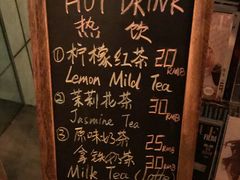 HOT DRINK
热饮
①柠檬红茶 20 RMB
Lemon Mild Tea
②茉莉花茶 30 RMB
Jasmine Tea
③原味奶茶 25 RMB
拿铁奶茶 30 RMB
Milk Tea (Latte)